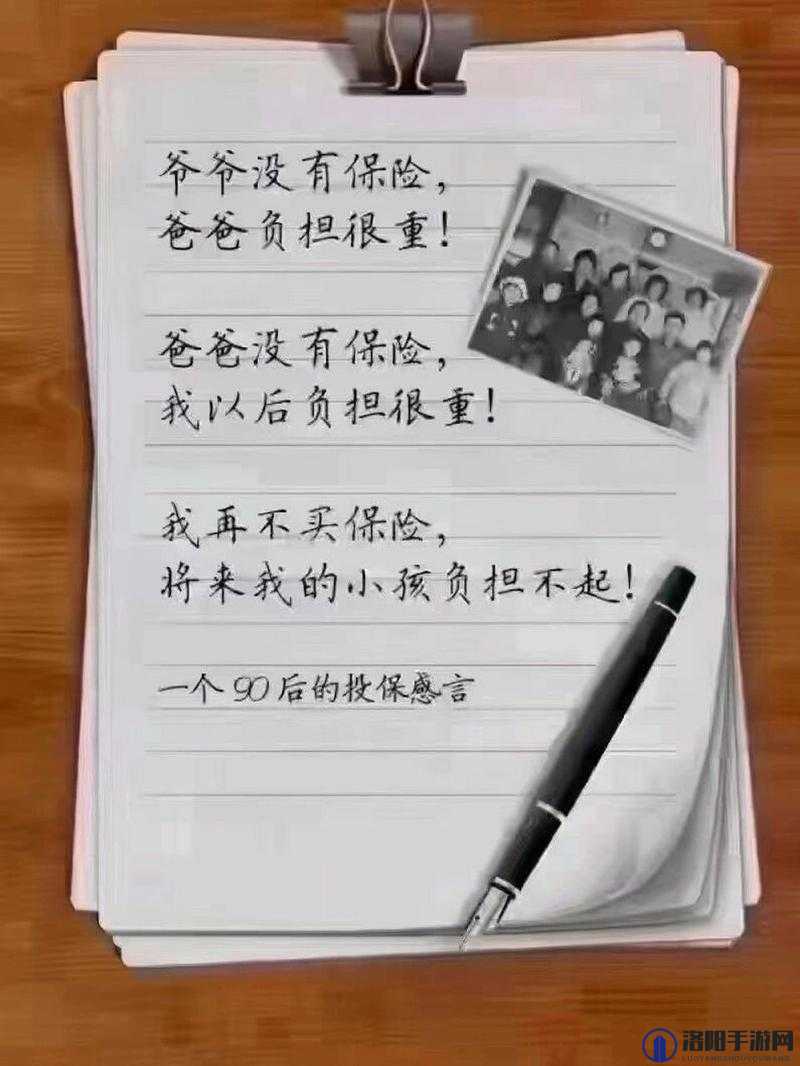 爷爷没有保险，
爸爸负担很重！
爸爸没有保险，
我以后负担很重！
我再不买保险，
将来我的小孩负担不起！
一个90后的投保感言
洛阳手游网
LUOYANGSHOUYOUWANG